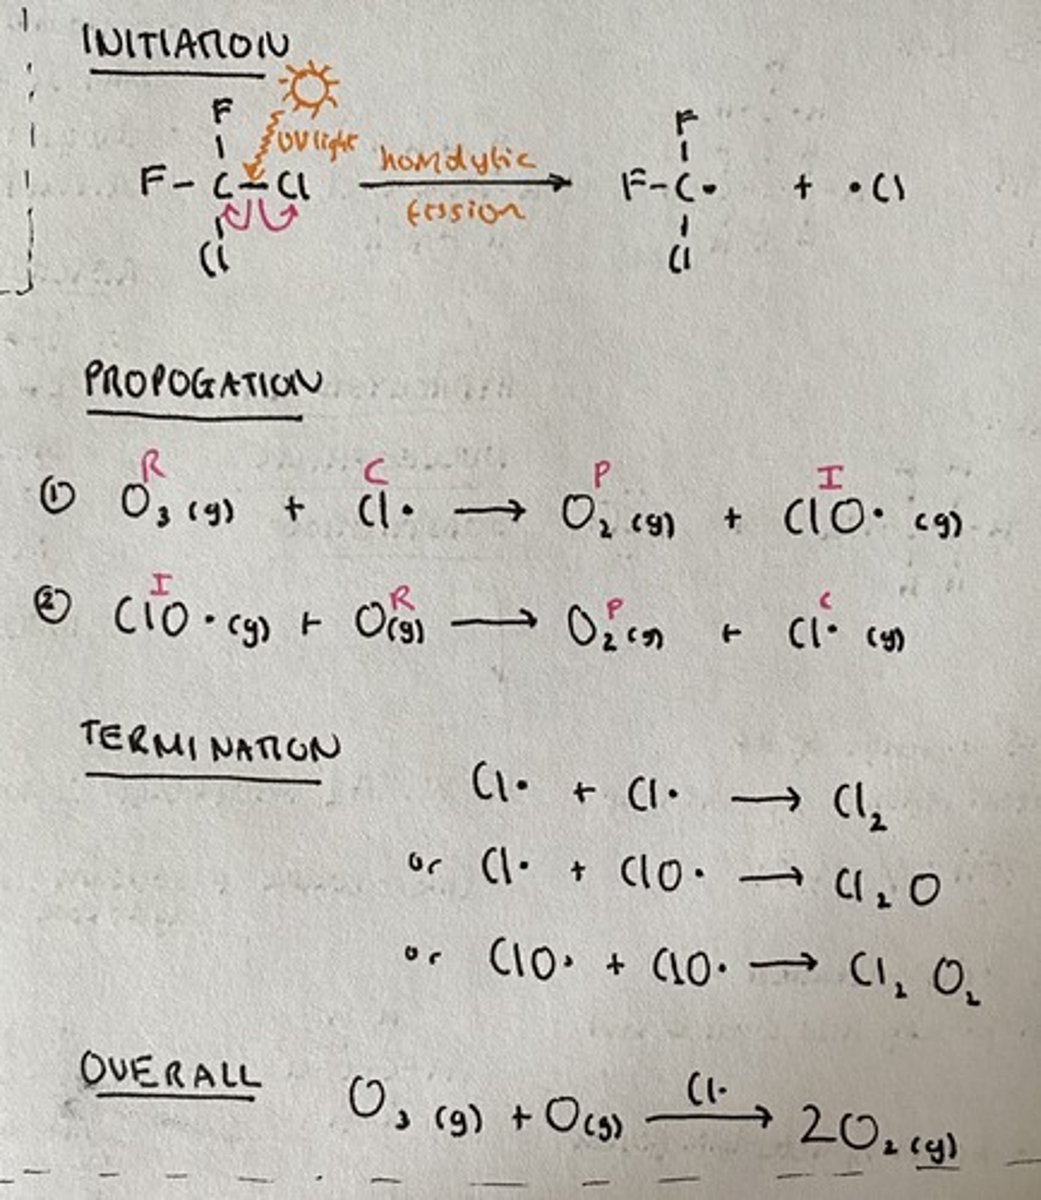 INITIATION
F
UV light
F - C - Cl homolytic fission F - C • + • Cl
Cl
F
Cl
PROPOGATION
R C P I
① O₃ (g) + Cl• → O₂ (g) + ClO• (g)
I R P C
② ClO• (g) + O(g) → O₂ (g) + Cl• (g)
TERMINATION
Cl• + Cl• → Cl₂
or Cl• + ClO• → Cl₂O
or ClO• + ClO• → Cl₂O₂
OVERALL O₃ (g) + O(g) Cl• → 2O₂ (g)